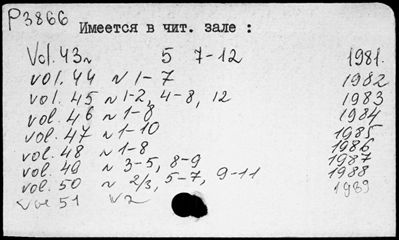 P3866
Имеется в чит. зале :
Vol. 43 N 5 7-12 1981.
vol. 44 N 1-7 1982
vol. 45 N 1-2, 4-8, 12 1983
vol. 46 N 1-8 1984
vol. 47 N 1-10 1985
vol. 48 N 1-8 1986
vol. 49 N 3-5, 8-9 1987
vol. 50 N 2/3, 5-7, 9-11 1988
vol 51 N2 1989